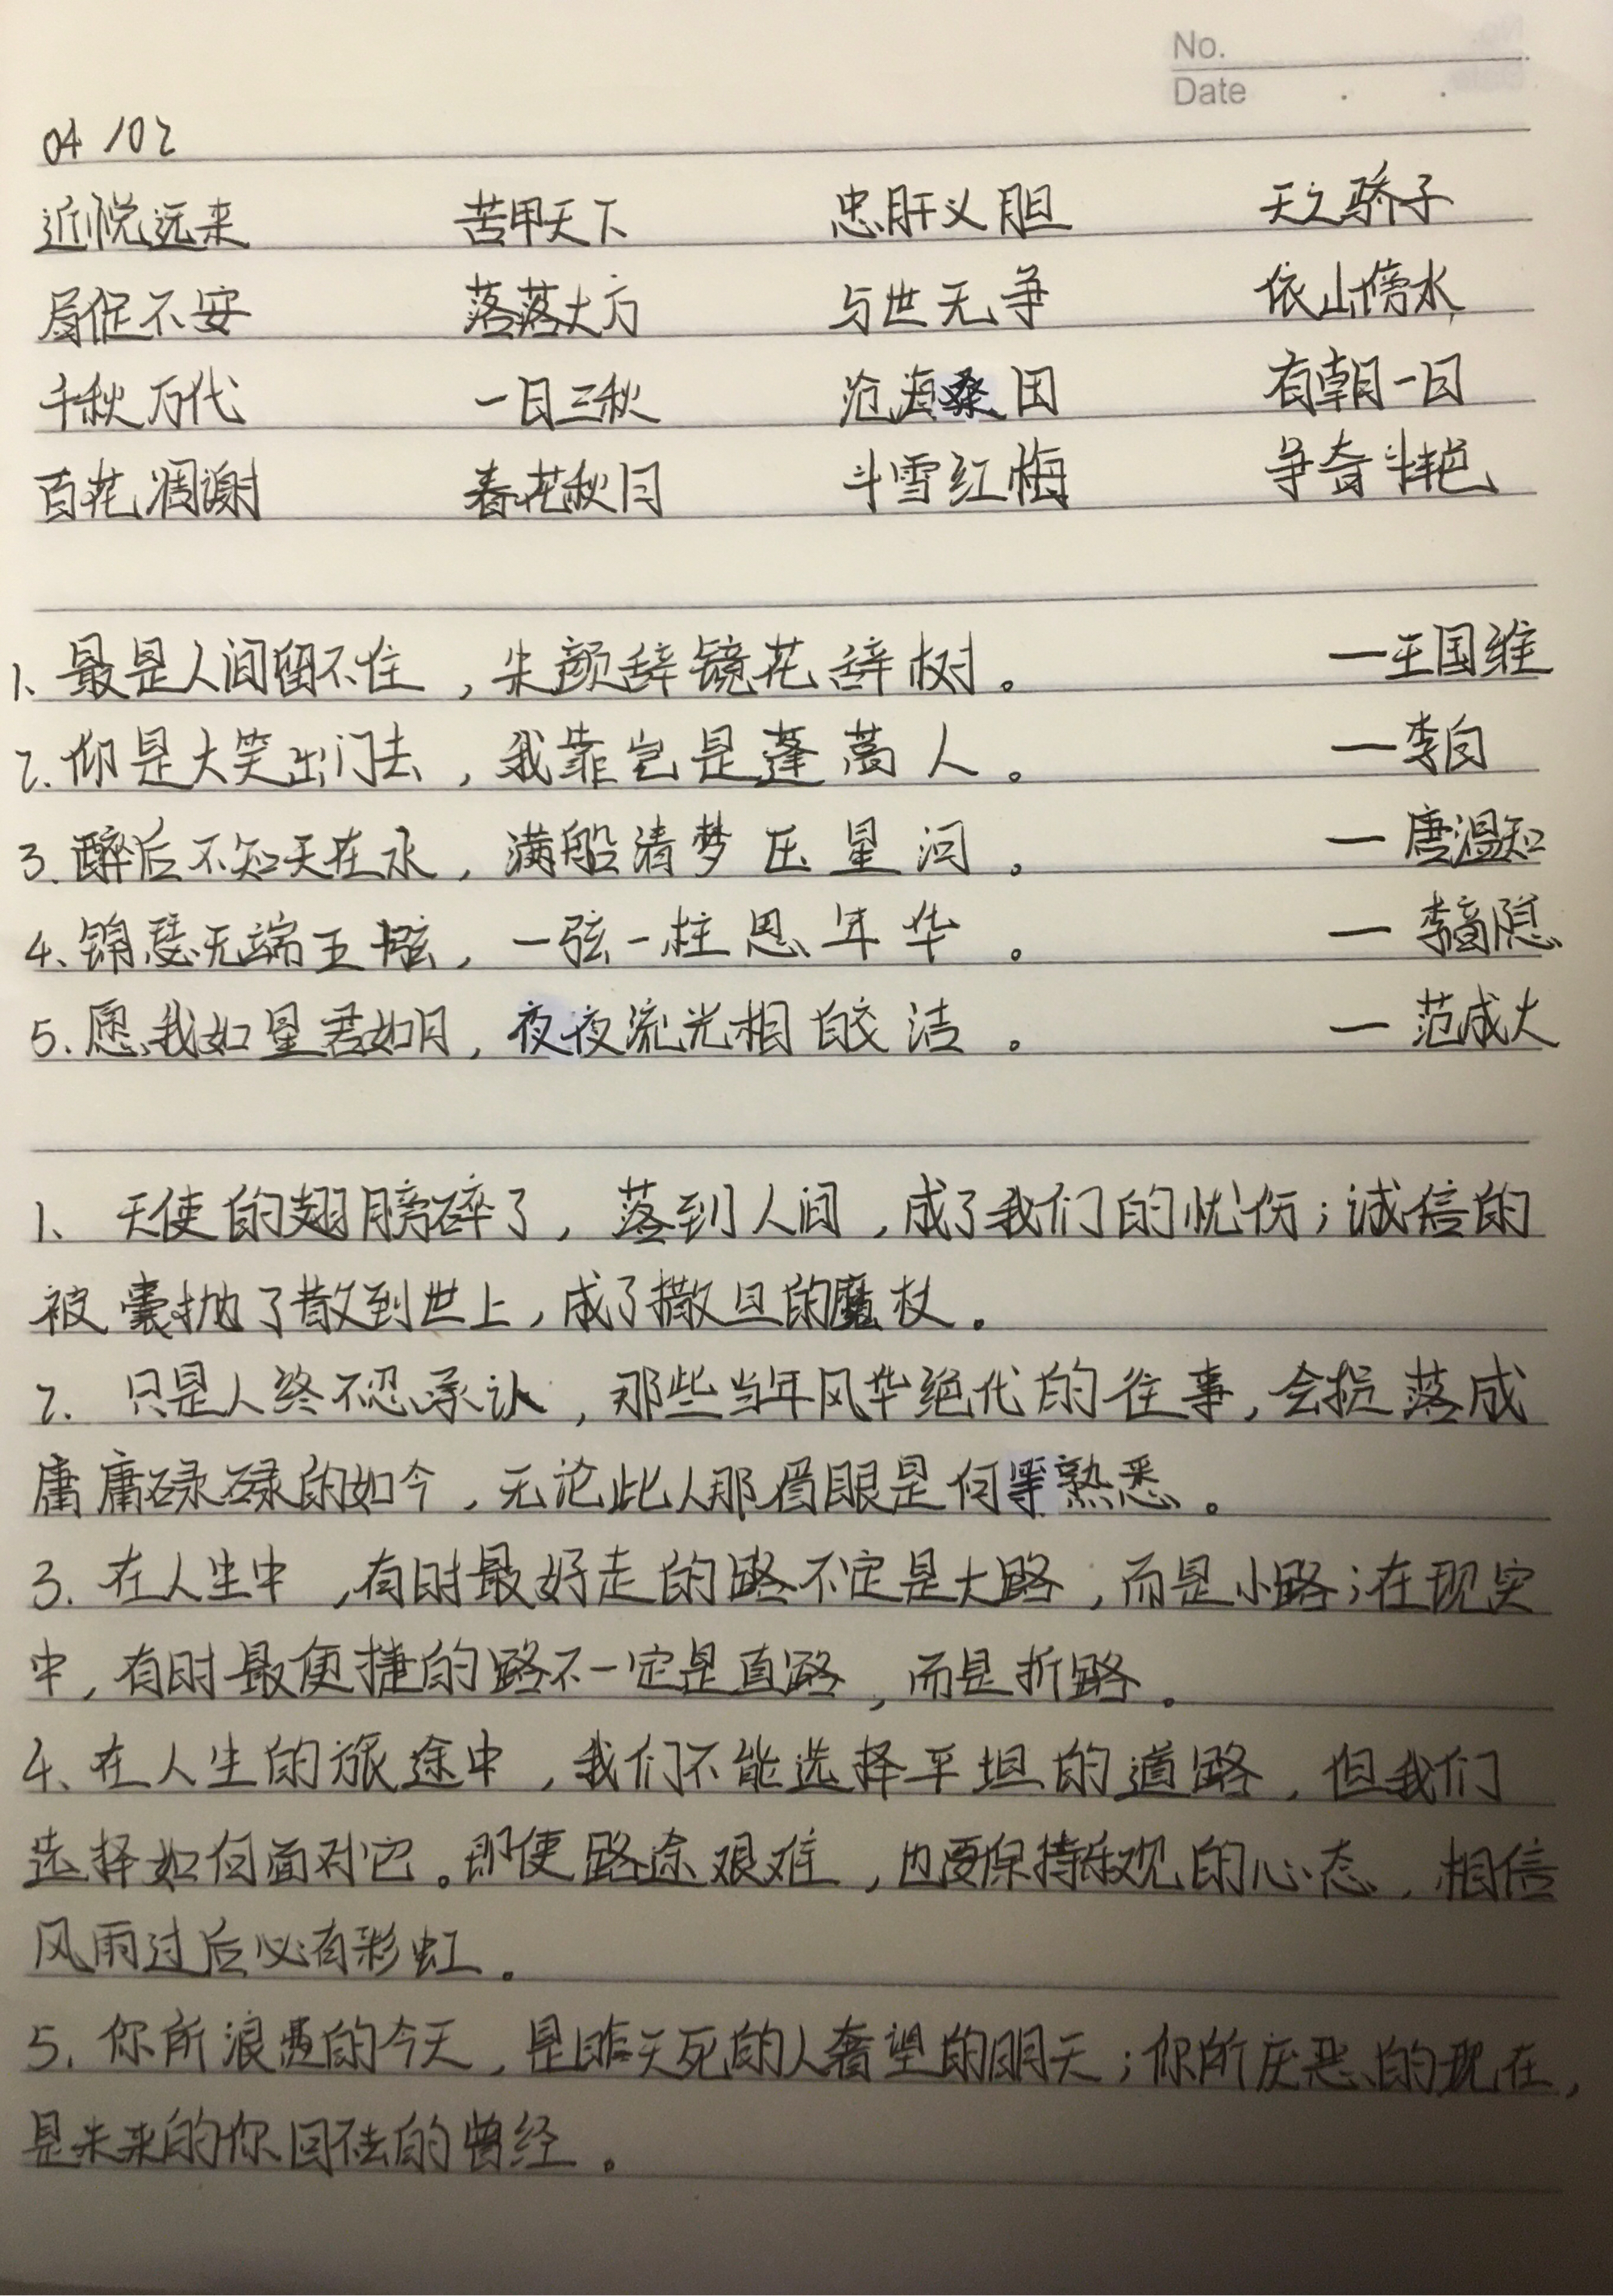 No.
Date
04/02
近悦远来 苦甲天下 忠肝义胆 天之骄子
局促不安 落落大方 与世无争 依山傍水
千秋万代 一日三秋 沧海桑田 有朝一日
百花凋谢 春花秋月 斗雪红梅 争奇斗艳
1、最是人间留不住，朱颜辞镜花辞树。 —王国维
2.仰是大笑出门去，我靠岂是蓬蒿人。 —李白
3.醉后不知天在水，满船清梦压星河。 —唐温知
4、锦瑟无端五十弦，一弦一柱思年华。 —李商隐
5.愿我如星君如月，夜夜流光相皎洁。 —范成大
1、天使的翅膀碎了，落到人间，成了我们的忧伤；诚信的
被囊抛了散到世上，成了撒旦的魔杖。
2. 只是人终不忍承认，那些当年风华绝代的往事，会损落成
庸庸碌碌的如今，无论此人那眉眼是何等熟悉。
3.在人生中，有时最好走的路不定是大路，而是小路；在现实
中，有时最便捷的路不一定是直路，而是折路。
4、在人生的旅途中，我们不能选择平坦的道路，但我们
选择如何面对它。即使路途艰难，也要保持乐观的心态，相信
风雨过后必有彩虹。
5.你所浪费的今天，是昨天死的人奢望的明天；你所厌恶的现在，
是未来的你回不去的曾经。